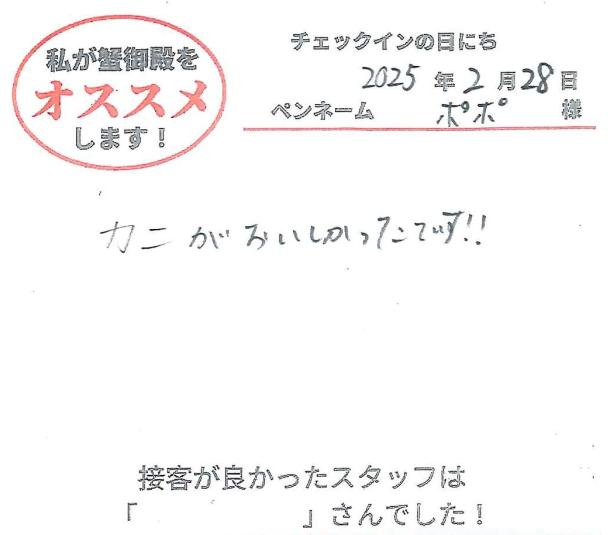 私が蟹御殿を
オススメ
します！
チェックインの日にち
2025年2月28日
ペンネーム ポポ 様
カニがおいしかったです!!
接客が良かったスタッフは
「　　　　　　」さんでした！